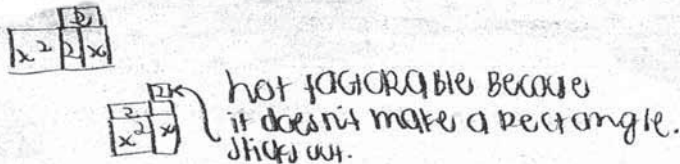 x² 2 x
2x
not factorable because
2
x² x
it doesn't make a rectangle.
sticks out.